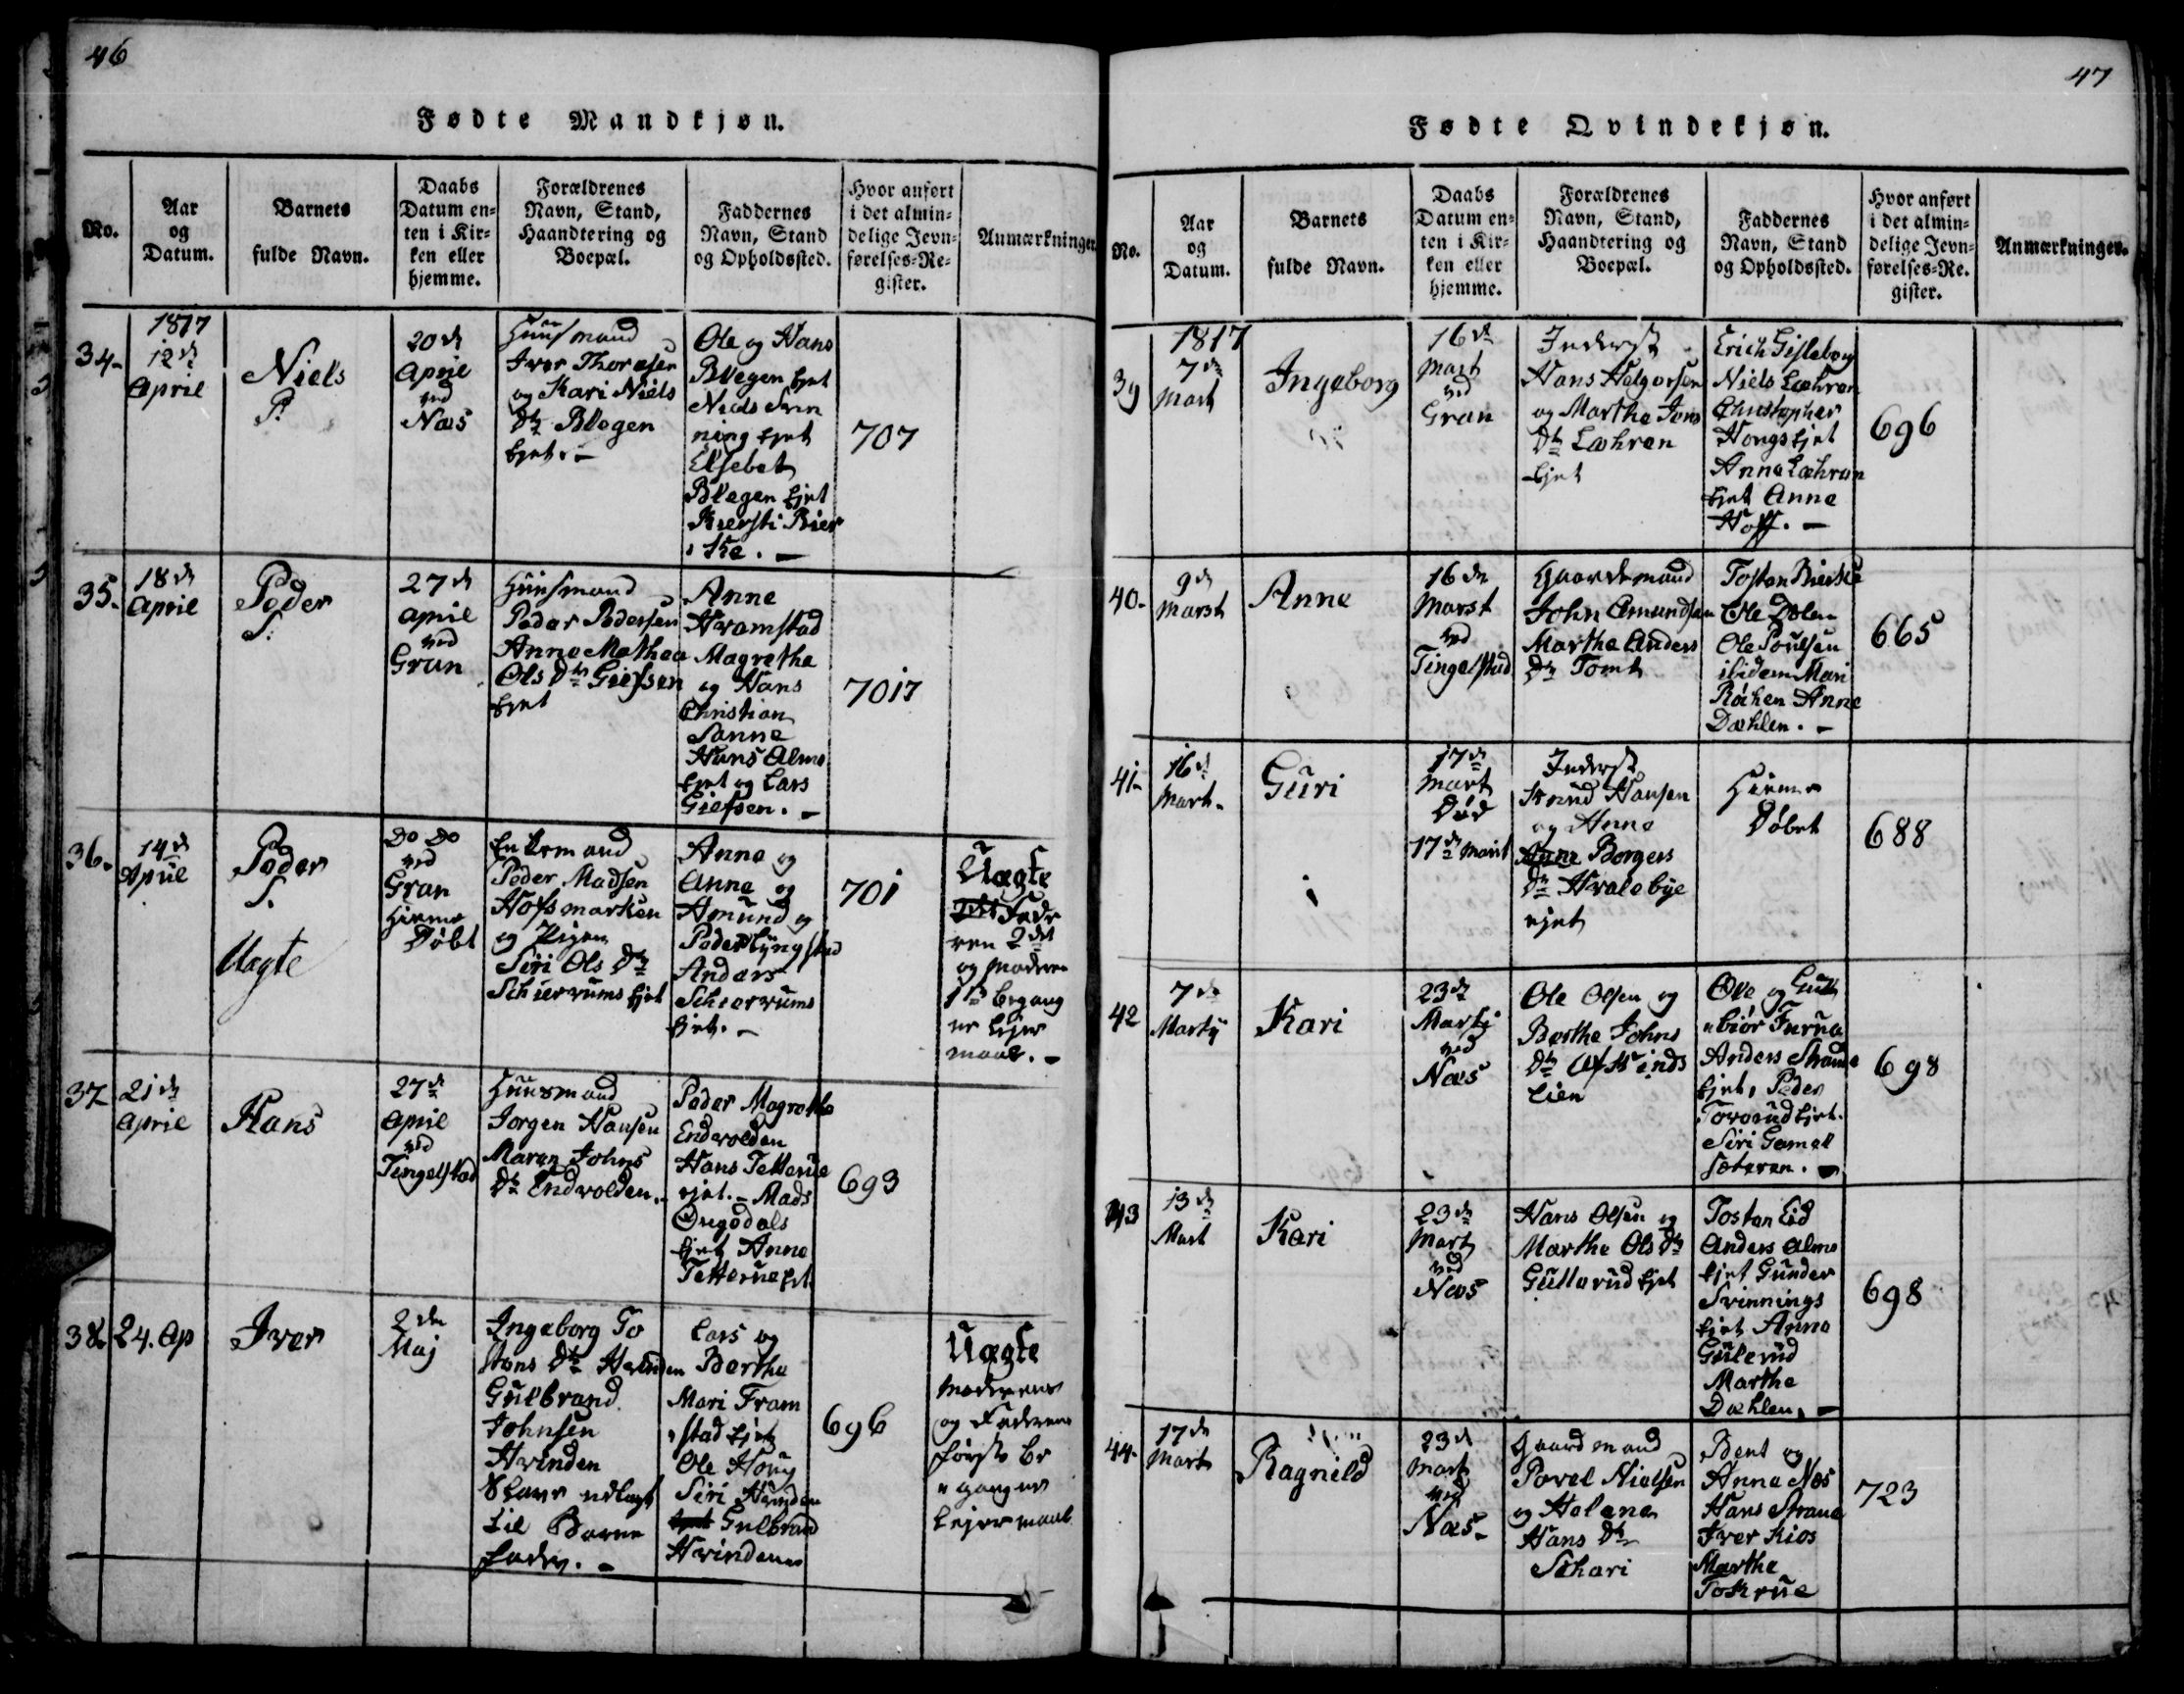 46
Fødte Mandkjøn.
No.
Aar
og
Datum.
Barnets
fulde Navn.
Daabs
Datum en-
ten i Kir-
ken eller
hjemme.
Forældrenes
Navn, Stand,
Haandtering og
Boepæl.
Faddernes
Navn, Stand
og Opholdssted.
Hvor anført
i det almin-
delige Jevn-
førelses-Re-
gister.
Anmærkninger.
34-
1817
12 d
April
Niels
P.
20 d
April
ved
Næs
Huusmand
Iver Thoresen
og Kari Niels
Dtr Blegen
Ejet. -
Ole og Hans
Blegen Ejet
Niels Svin
ning Ejet
Elsebet
Blegen Ejet
Kiersti Bier
ke. -
707
35.
18 d
April
Peder
S.
27 d
April
ved
Gran
Huusmand
Peder Pedersen
Anne Mathea
Ols Dtr Giefsen
Ejet
Anne
Framstad
Magrethe
og Hans
Christian
Sanne
Hans Alms
Ejet og Lars
Giefsen. -
7017
36.
14 d
April
Peder
S.
Uægte
Do Do
ved
Gran
Hiemme
Døbt
Enkemand
Peder Madsen
Hofsmarken
og Pigen
Siri Ols Dtr
Schierrums Ejet
Anne og
Anne og
Amund og
Peder Lyngstad
Anders
Schierrums
Ejet. -
701
Uægte
Fade
ren 2det
og Moderen
1ste begang
ne Lejer
maal. -
37
21 d
April
Hans
27 d
April
ved
Tingelstad
Huusmand
Jorgen Hansen
Maren Johns
Dtr Endvolden. -
Peder Magrethe
Endvolden
Hans Tetterue
ejet. - Mads
Øregdals
Ejet Anne
Tetterue Ejet
693
38.
24. Ap
Iver
2 den
Maj
Ingeborg To
stens Dtr Hvinden
Gulbrand
Johnsen
Hvinden
blev udlagt
til Barne
fader. -
Lars og
Berthe
Mari Fram
stad Ejet
Ole Houg
Siri Hvinden
Gulbrand
Hvinden
696
Uægte
Moderens
og Faderens
første be
gangne
Lejermaal
47
Fødte Qvindekjøn.
No.
Aar
og
Datum.
Barnets
fulde Navn.
Daabs
Datum en-
ten i Kir-
ken eller
hjemme.
Forældrenes
Navn, Stand,
Haandtering og
Boepæl.
Faddernes
Navn, Stand
og Opholdssted.
Hvor anført
i det almin-
delige Jevn-
førelses-Re-
gister.
Anmærkninger.
39
1817
7 de
Mart
Ingeborg
16 d
Mart
ved
Gran
Inderst
Hans Helgersen
og Marthe Jens
Dtr Læhren
Ejet
Erich Gisleberg
Niels Læhren
Christopher
Hongs Ejet
Anne Læhren
Ejet Anne
Hoff. -
696
40-
9 d
Marst
Anne
16 de
Marst
ved
Tingelstad
Gaardmand
John Amundsen
Marthe Anders
Dtr Tomt
Tosten Bierke
Ole Dolen
Ole Poulsen
ibidem Mari
Røken Anne
Dæhlen. -
665
41-
16 d
Mart.
Guri
17 d
Mart
Død
17 de Mart
Inderst
Knud Hansen
og Anne
Anne Borgers
Dtr Hvalebye
ejet
Hiemme
Døbet
688
42
7 de
Martj
Kari
23 d
Martj
ved
Næs
Ole Olsen og
Berthe Johns
Dtr
Lien
Ole og
Anders Strande
Ejet, Peder
Ejet.
Siri Gamel
sæteren. -
698
43
13 de
Mart
Kari
23 de
Mart
ved
Næs
Hans Olsen og
Marthe Ols Dtr
Gullerud Ejet
Tosten Eid
Anders Alms
Ejet Gunder
Svinnings
Ejet Anne
Gulerud
Marthe
Dæhlen. -
698
44-
17 de
Mart
Ragnild
23 d
Mart
ved
Næs-
Gaardmand
Povel Nielsen
og Helene
Hans Dtr
Schari
Bent og
Anne Næs
Hans Strand
Iver Kios
Marthe
Tokerue
723